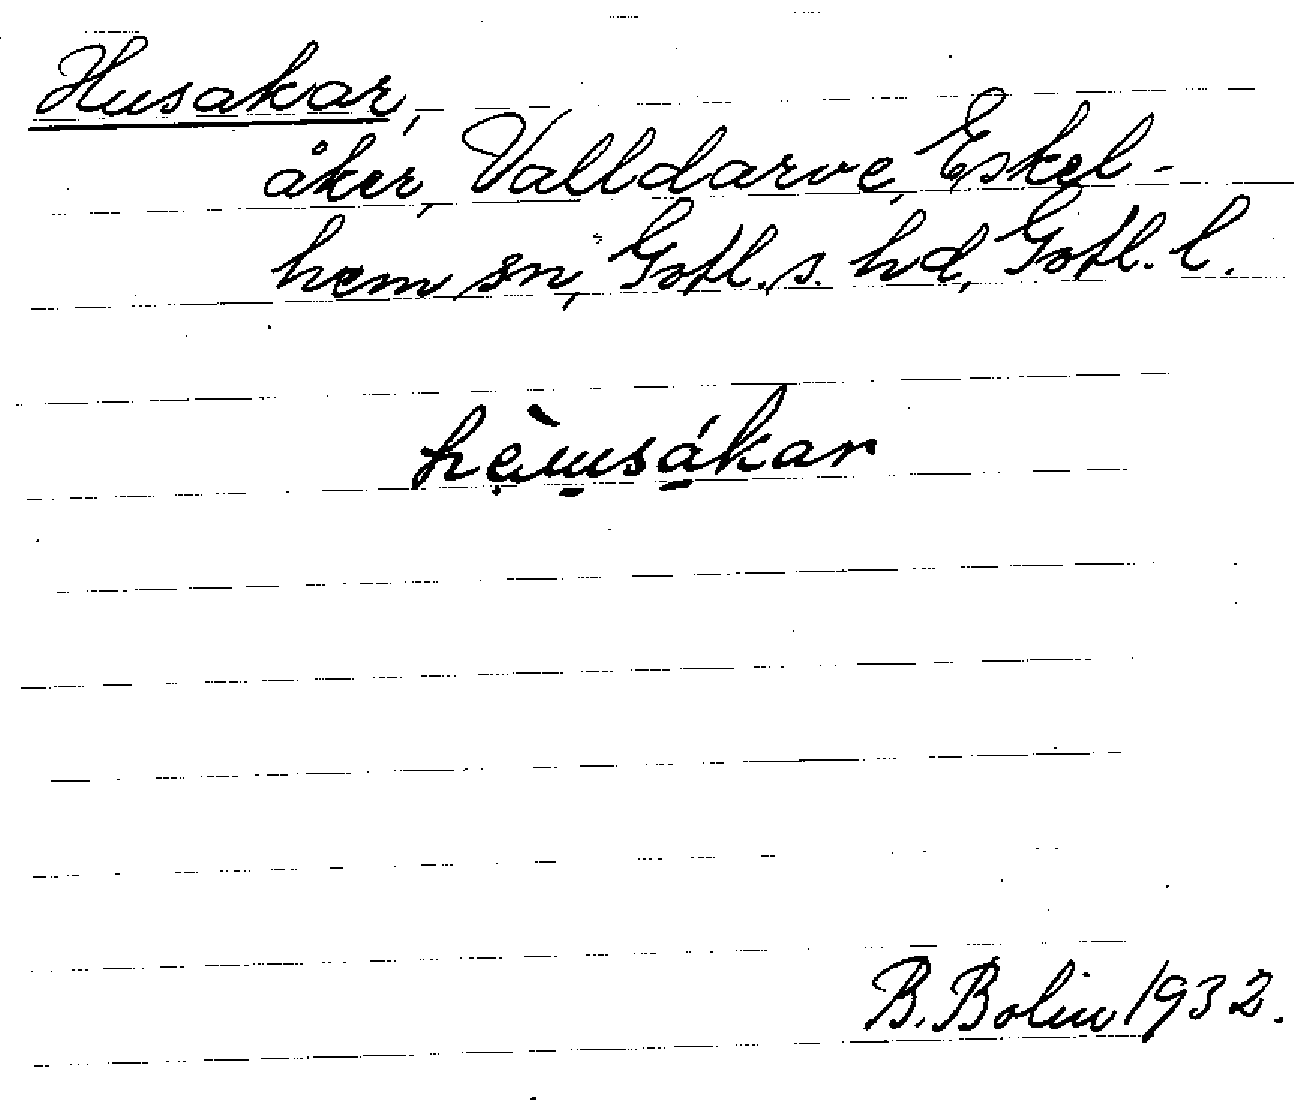 Husakar,
åker, Valldarve, Eskel-
hem sn, Gotl. s. hd, Gotl. l.
B. Bolin 1932.